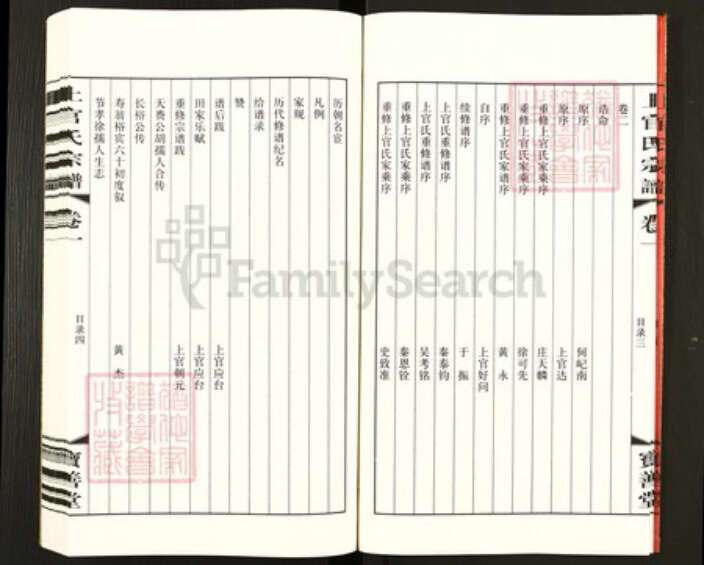 上官氏宗譜
卷一
目录三
寶善堂
卷二
诰命
原序 何屺南
原序 上官达
重修上官氏家乘序 庄天麟
重修上官氏家乘序 徐可先
重修上官氏家谱序 黄永
自序 上官好问
续修谱序 于振
上官氏重修谱序 秦泰钧
上官氏重修谱序 吴考铭
重修上官氏家乘序 秦恩铨
重修上官氏家乘序 史致准
历朝名宦
凡例
家规
历代修谱纪名
给谱录
赞
谱后跋 上官应台
田家乐赋 上官应台
重修宗谱跋 上官朝元
天赉公胡孺人合传
长裕公传
寿翁裕宾六十初度叙 黄杰
节孝徐孺人生志
上官氏宗譜
卷一
目录四
寶善堂
FamilySearch